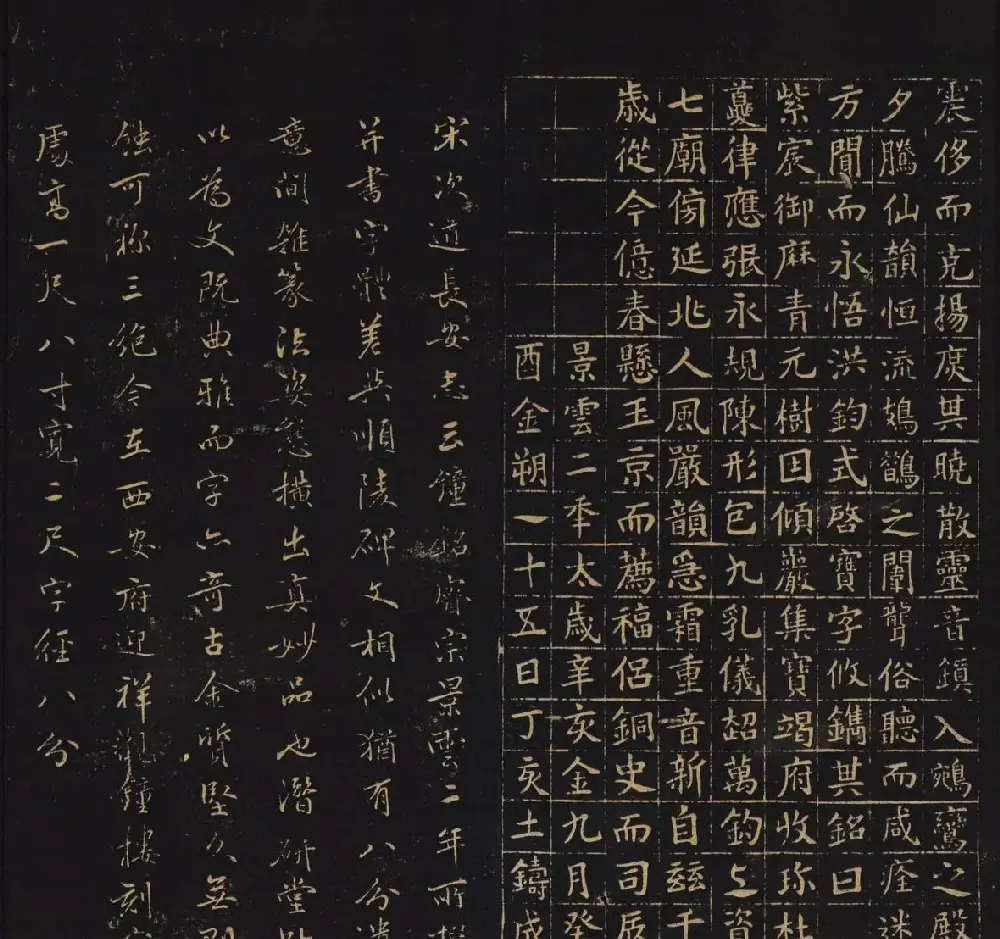 震侈而克揚庶其曉散靈音鎮入鵷鸞之殿
夕騰仙韻恒流鳷鵲之闈聾俗聽而咸痊迷
方聞而永悟洪鈞式啓寶字攸鐫其銘曰
紫宸御曆青元樹因傾巖集寶竭府收珎杜
夔律應張永規陳形包九乳儀超萬鈞上資
七廟傍延兆人風嚴韻急霜重音新自玆千
歲從今億春懸玉京而薦福侶銅史而司辰
景雲二年太歲辛亥金九月癸
酉金朔一十五日丁亥土鑄成
宋次道長安志云鐘銘睿宗景雲二年所
并書字體差與順陵碑文相似猶有八分遺
意間雜篆法姿態橫出真妙品也潛研堂
以為文既典雅而字亦奇古金質堅久無
蝕可稱三絕今在西安府迎祥觀鐘樓刻
處高一尺八寸寬二尺字徑八分